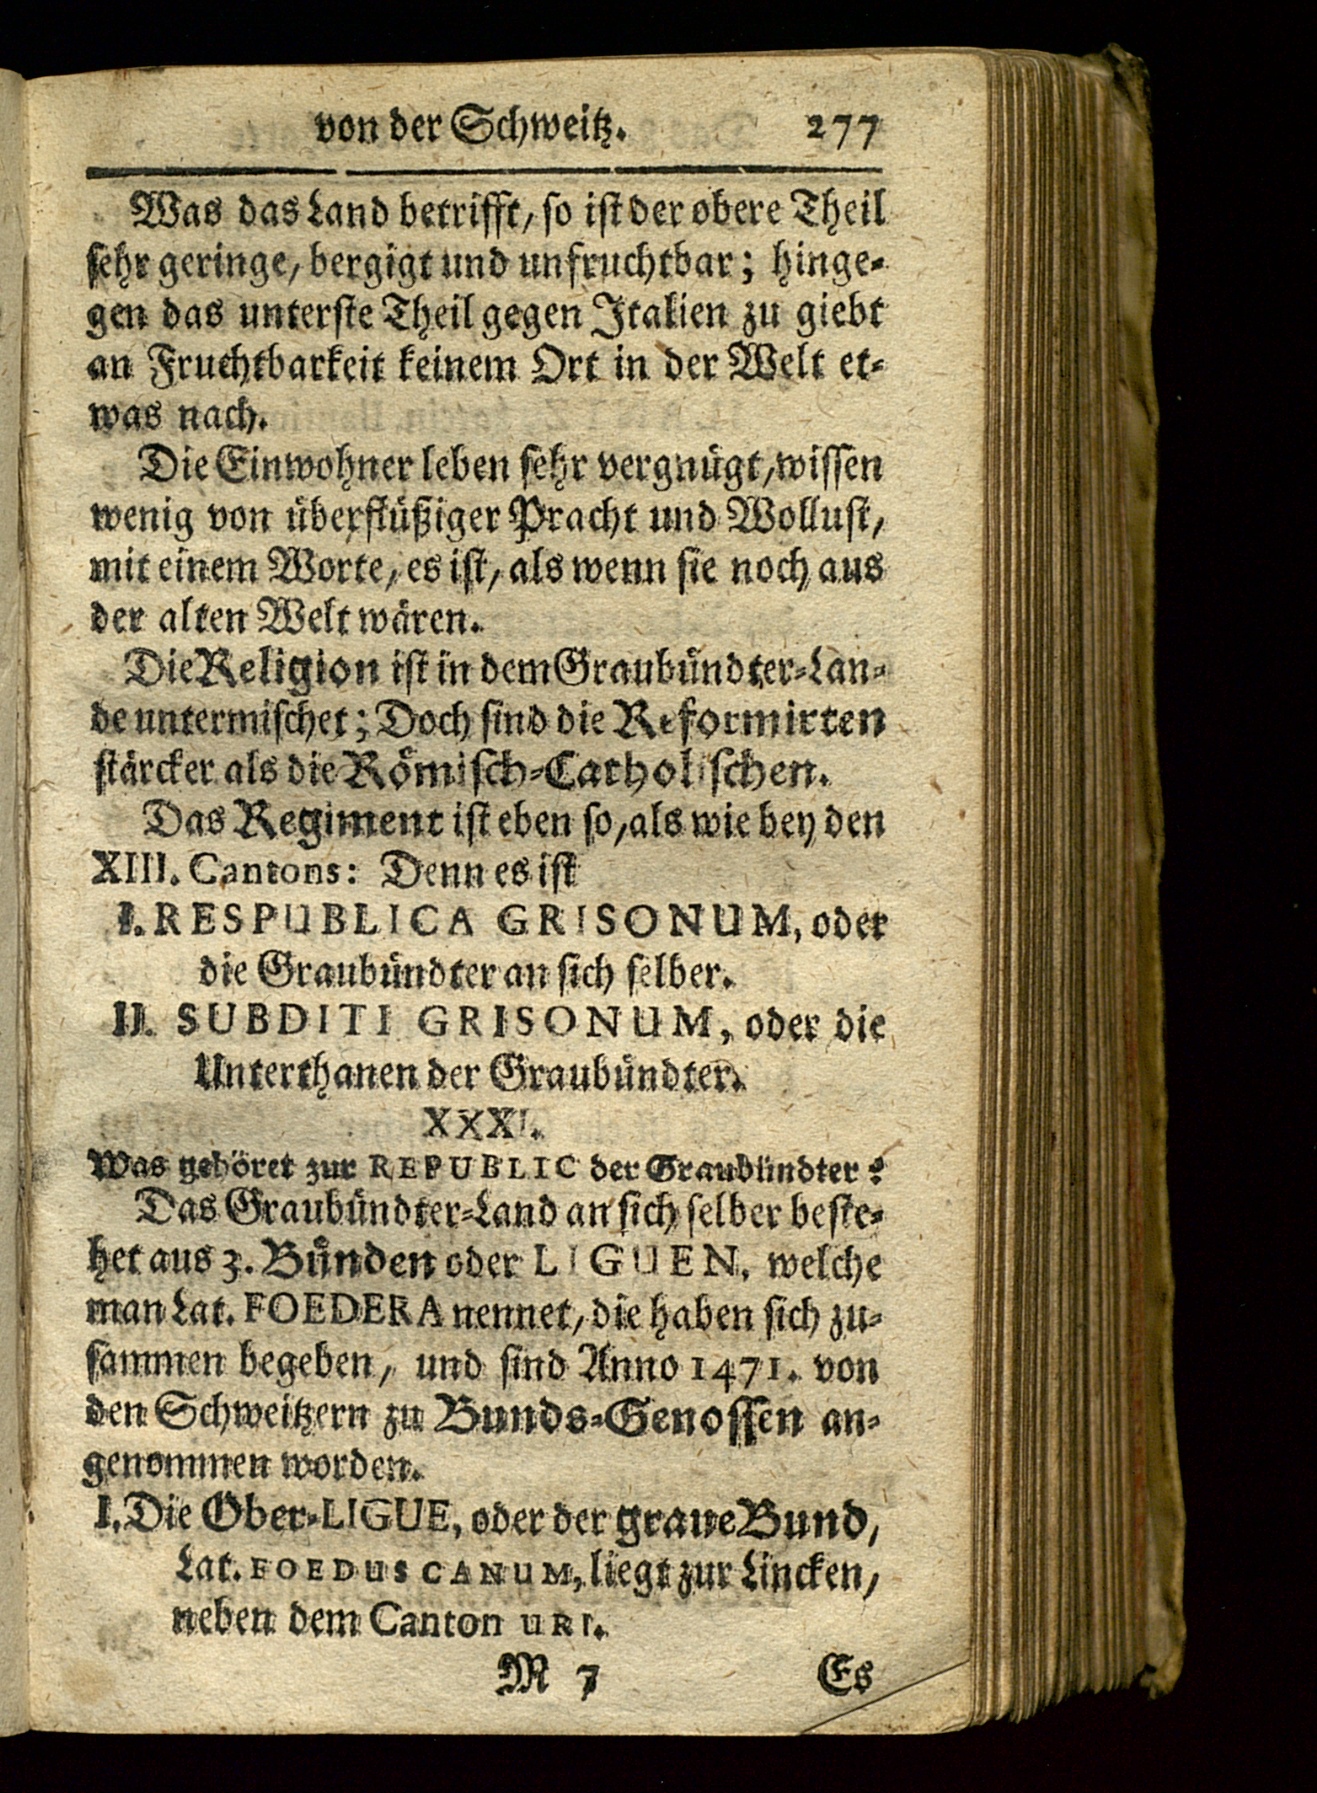 von der Schweitz. 277
Was das Land betrifft, so ist der obere Theil
sehr geringe, bergigt und unfruchtbar; hinge-
gen das unterste Theil gegen Italien zu giebt
an Fruchtbarkeit keinem Ort in der Welt et-
was nach.
Die Einwohner leben sehr vergnügt, wissen
wenig von überflüßiger Pracht und Wollust,
mit einem Worte, es ist, als wenn sie noch aus
der alten Welt wären.
Die Religion ist in dem Graubündter-Lan-
de untermischet; Doch sind die Reformirten
stärcker als die Römisch-Catholischen.
Das Regiment ist eben so, als wie bey den
XIII. Cantons: Denn es ist
I. RESPUBLICA GRISONUM, oder
die Graubündter an sich selber.
II. SUBDITI GRISONUM, oder die
Unterthanen der Graubündter.
XXXI.
Was gehöret zur REPUBLIC der Graubündter?
Das Graubündter-Land an sich selber beste-
het aus 3. Bünden oder LIGUEN, welche
man Lat. FOEDERA nennet, die haben sich zu-
sammen begeben, und sind Anno 1471. von
den Schweitzern zu Bunds-Genossen an-
genommen worden.
I. Die Ober-LIGUE, oder der graue Bund,
Lat. FOEDUS CANUM, liegt zur Lincken,
neben dem Canton URI.
M 7 Es